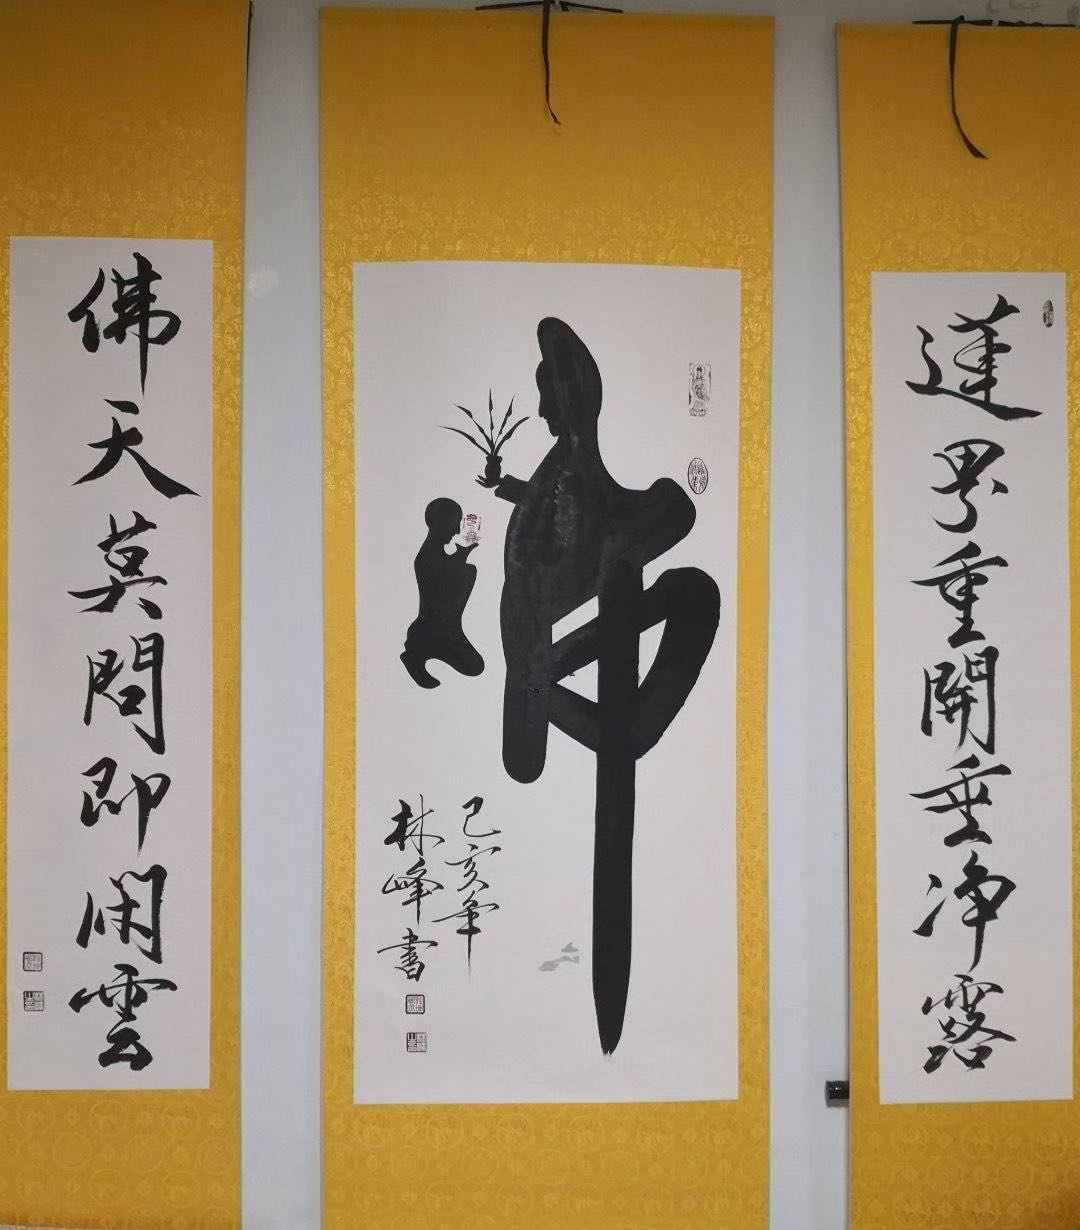 蓮界重開垂净露
佛
己亥年
林峰書
佛天莫問即閑雲